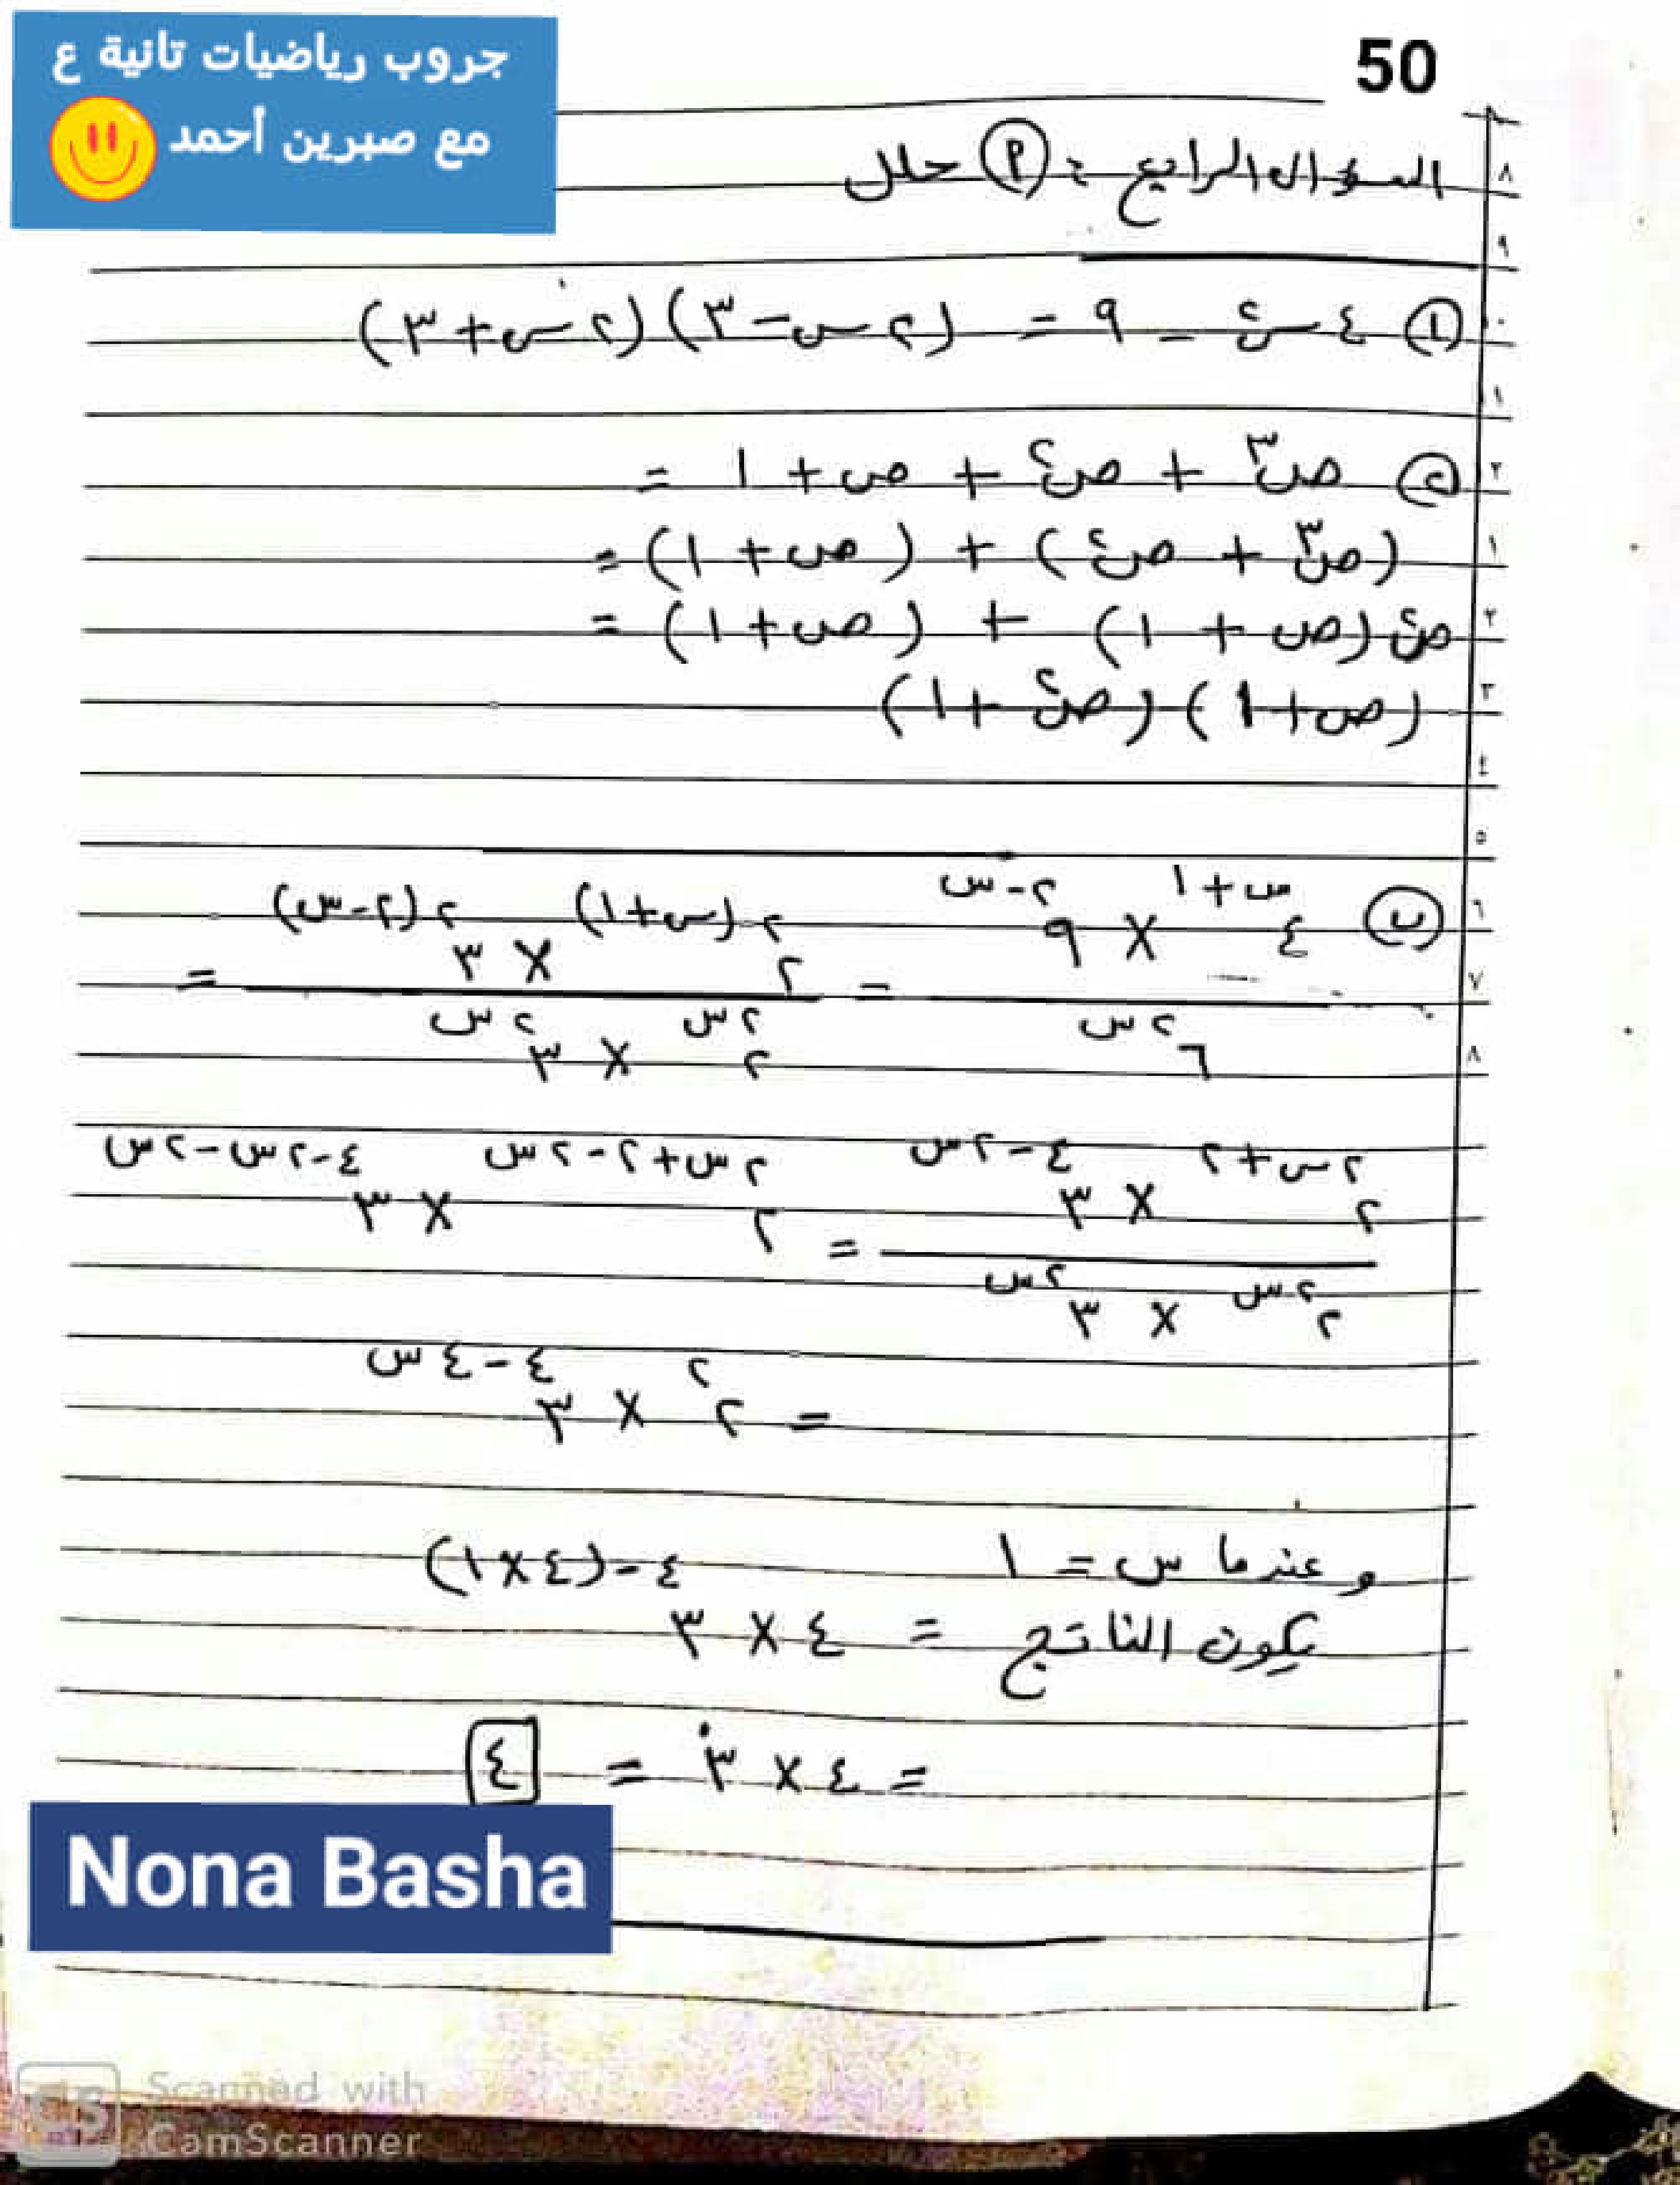 جروب رياضيات تانية ع
مع صبرين أحمد
50
السؤال الرابع : (أ) حلل
(١) ٤س٢ - ٩ = (٢س - ٣)(٢س + ٣)
(٢) ص٣ + ص٢ + ص + ١ =
(ص٣ + ص٢) + (ص + ١) =
ص٢(ص + ١) + (ص + ١) =
(ص + ١)(ص٢ + ١)
(ب) ٤^(س+١) × ٩^(٢-س) / ٦^(٢س) = ٢^(٢(س+١)) × ٣^(٢(٢-س)) / ٢^(٢س) × ٣^(٢س) =
٢^(٢س+٢) × ٣^(٤-٢س) / ٢^(٢س) × ٣^(٢س) = ٢^(٢س+٢-٢س) × ٣^(٤-٢س-٢س)
= ٢^٢ × ٣^(٤-٤س)
وعندما س = ١
يكون الناتج = ٤ × ٣^(٤-(٤×١))
= ٤ × ٣^٠ = ٤
Nona Basha
CS Scanned with
CamScanner